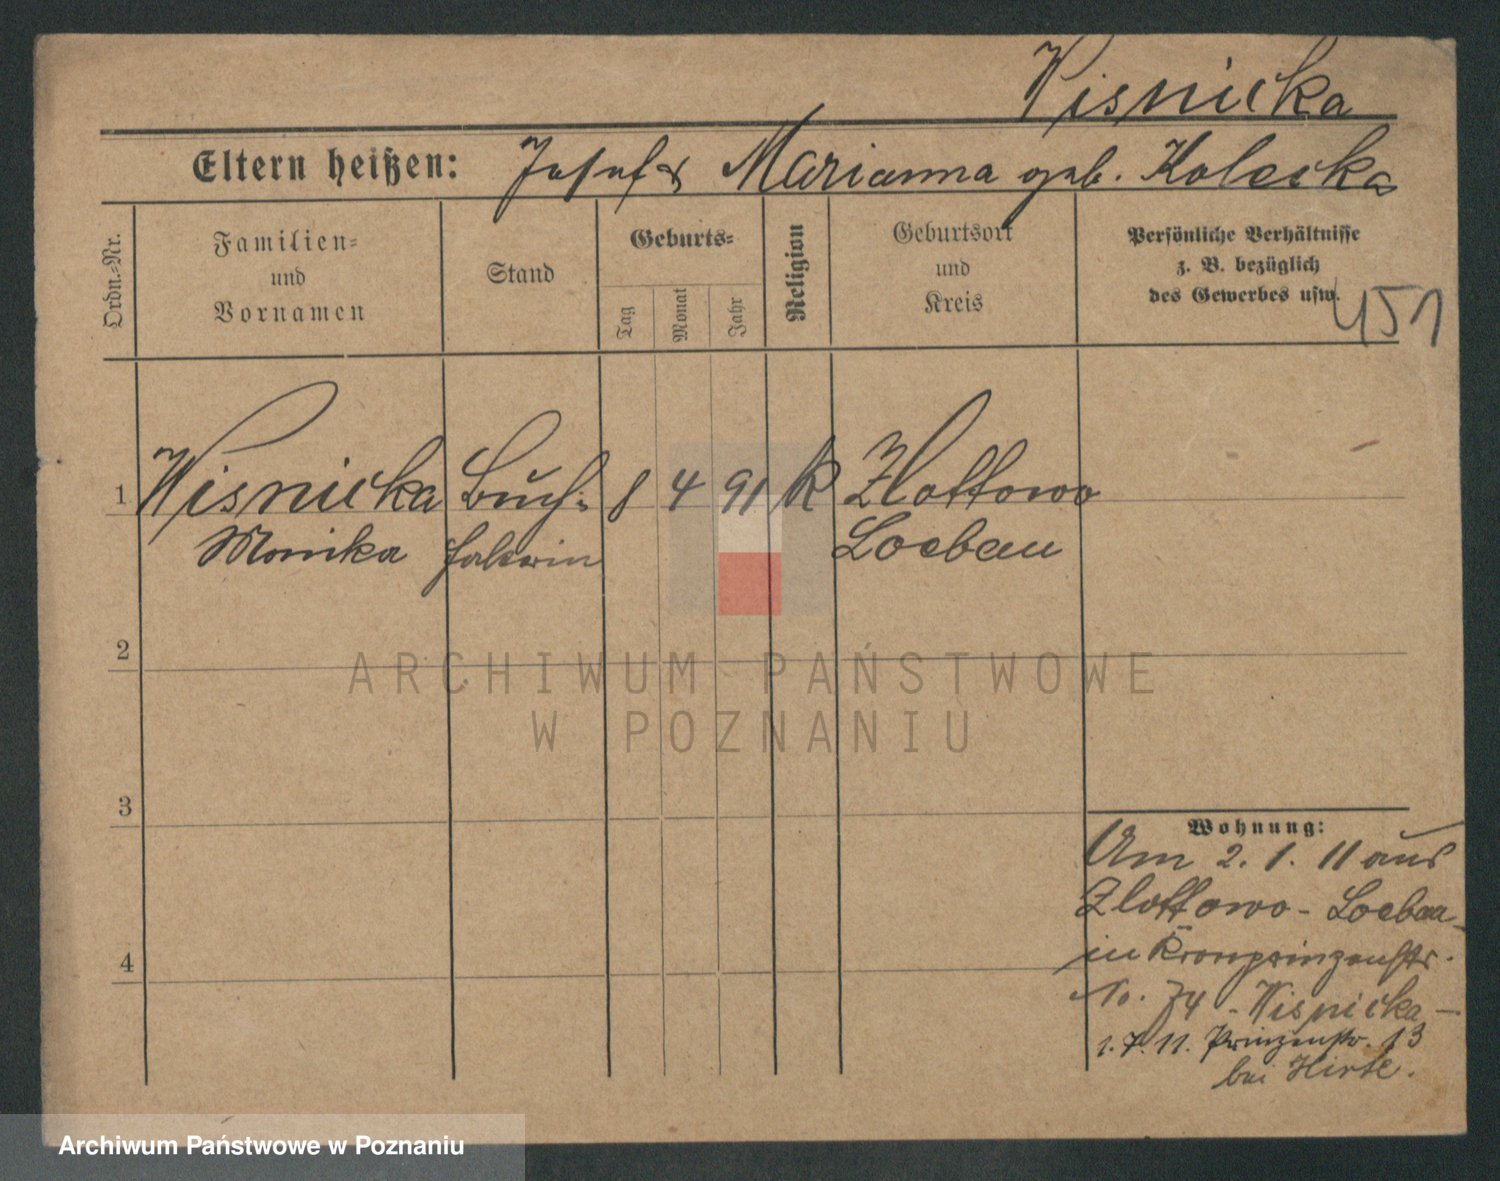 Wisnicka
Eltern heißen: Josef & Marianna geb. Koleska
Ordn.-Nr.
Familien-
und
Vornamen
Stand
Geburts-
Tag
Monat
Jahr
Religion
Geburtsort
und
Kreis
Persönliche Verhältnisse
z. B. bezüglich
des Gewerbes usw.
451
1 Wisnicka Buch- 8 4 91 K Zlottowo
Monika halterin Loebau
2
3
4
Wohnung:
Am 2. 1. 11 aus
Zlottowo - Loebau
in Kronprinzenstr.
No. 74 - Wisnicka -
1. 7. 11. Prinzenstr. 13
bei Hirte.
ARCHIWUM PAŃSTWOWE
W POZNANIU
Archiwum Państwowe w Poznaniu